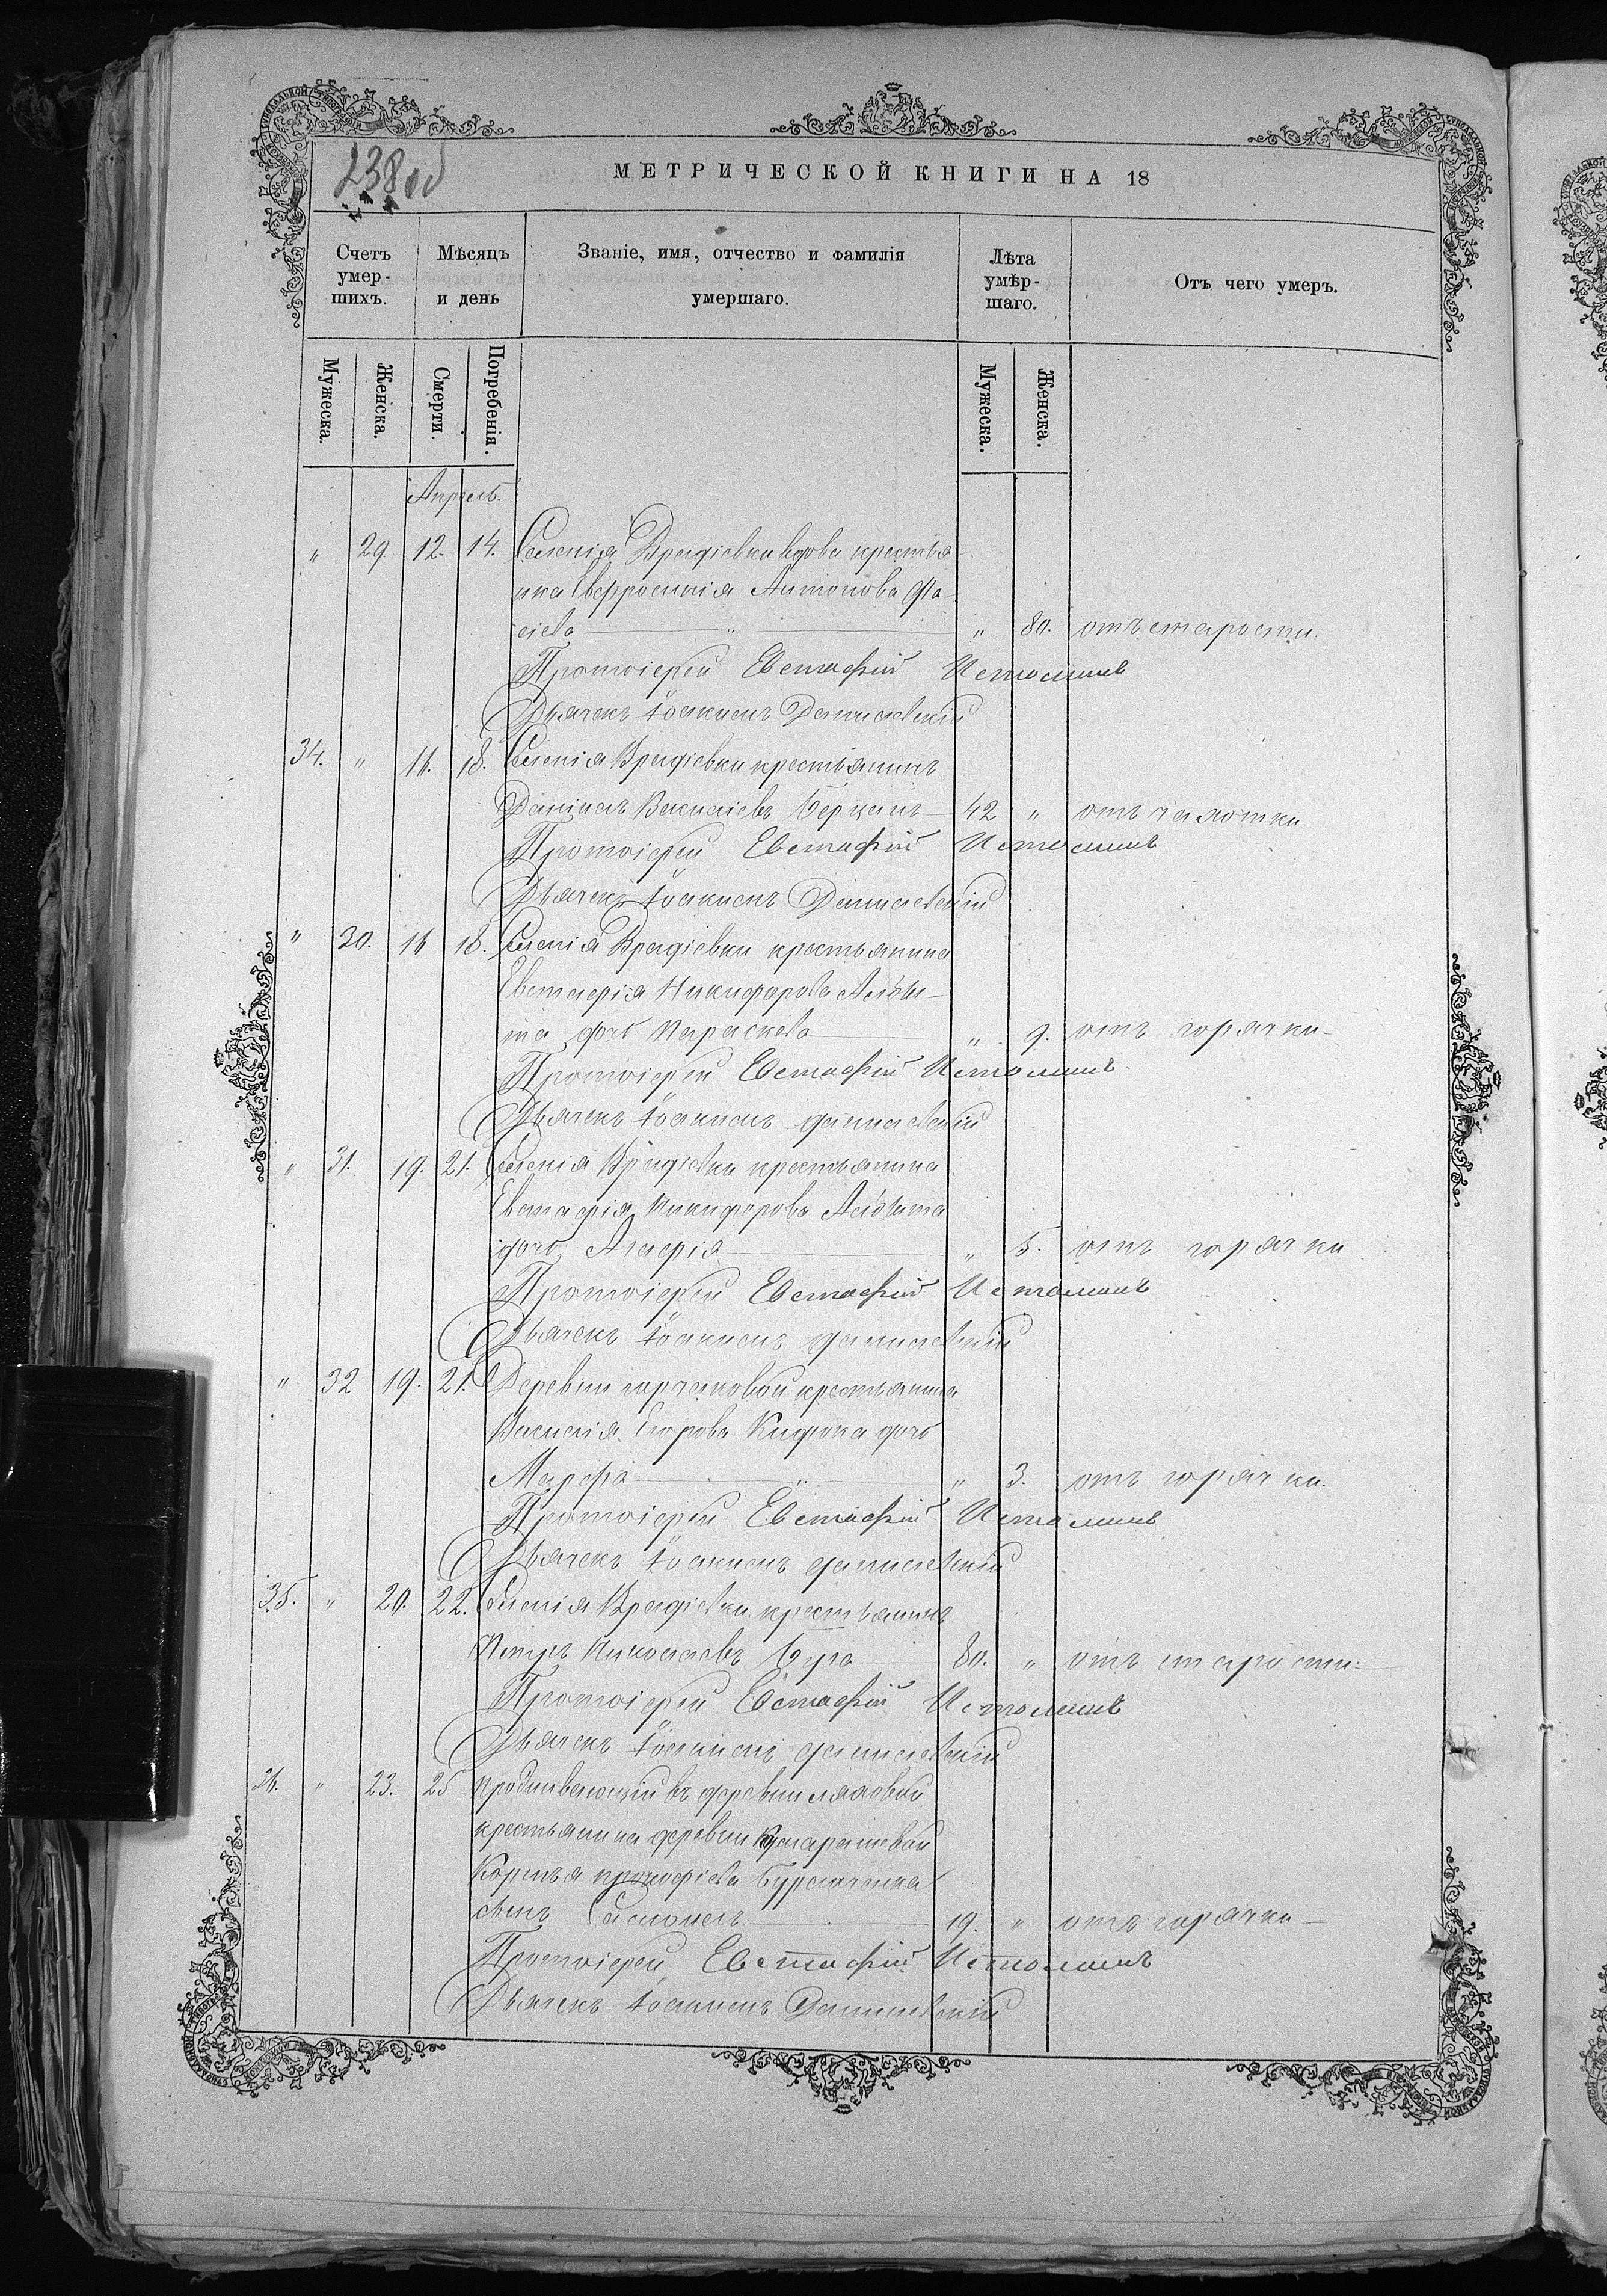 238 об
МЕТРИЧЕСКОЙ КНИГИ НА 18
Счетъ умер-шихъ.
Мѣсяцъ и день
Званіе, имя, отчество и фамилія умершаго.
Лѣта умѣр-шаго.
Отъ чего умеръ.
Мужеска.
Женска.
Смерти.
Погребенія.
Мужеска.
Женска.
Апрель.
" 29. 12. 14. Селенія Врадіевки вдова крестья-
нка Евфросинія Антонова
" 80. отъ старости.
Протоіерей Евстафій Истоминъ
Дьячекъ Іоакимъ Данилевскій
34. " 16. 18. Селенія Врадіевки крестьянинъ
Даніилъ Василіевъ 42 " отъ чахотки
Протоіерей Евстафій Истоминъ
Дьячекъ Іоакимъ Данилевскій
" 30. 16 18. Селенія Врадіевки крестьянина
Евстафія Никифорова
дочь Параскева " 9. отъ горячки
Протоіерей Евстафій Истоминъ
Дьячекъ Іоакимъ Данилевскій
" 31. 19. 21. Селенія Врадіевки крестьянина
Евстафія Никифорова
дочь " 5. отъ горячки
Протоіерей Евстафій Истоминъ
Дьячекъ Іоакимъ Данилевскій
" 32 19. 21. Деревни крестьянина
Василія Егорова дочь
Марфа " 3. отъ горячки.
Протоіерей Евстафій Истоминъ
Дьячекъ Іоакимъ Данилевскій
35. " 20. 22. Селенія Врадіевки крестьянинъ
Петръ Николаевъ 80. " отъ старости
Протоіерей Евстафій Истоминъ
Дьячекъ Іоакимъ Данилевскій
36. " 23. 25 въ деревни
крестьянина деревни
сынъ 19. " отъ горячки
Протоіерей Евстафій Истоминъ
Дьячекъ Іоакимъ Данилевскій